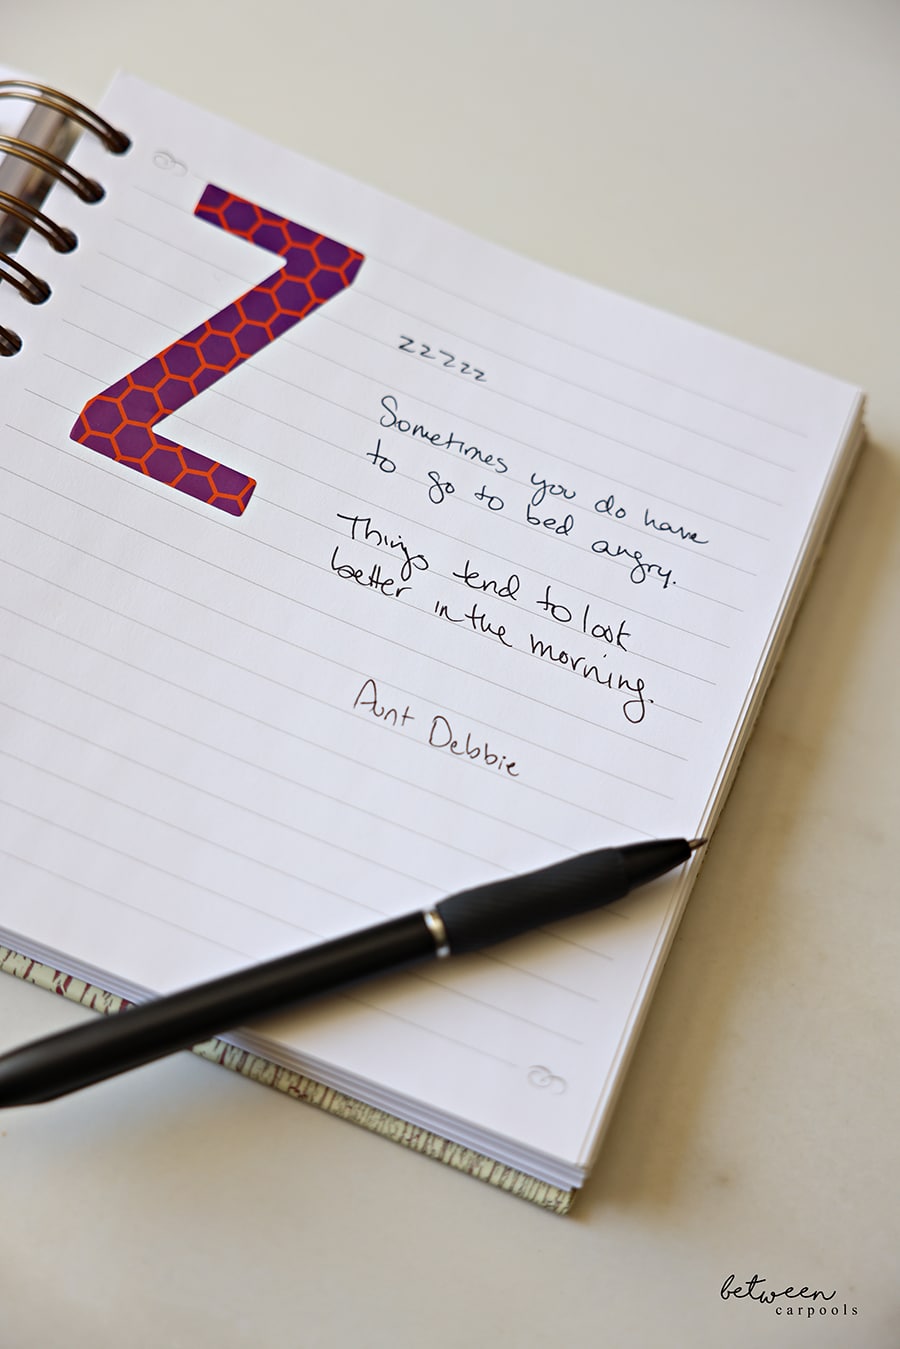 Z
zzzzz
Sometimes you do have
to go to bed angry.
Things tend to look
better in the morning.
Aunt Debbie
between
carpools